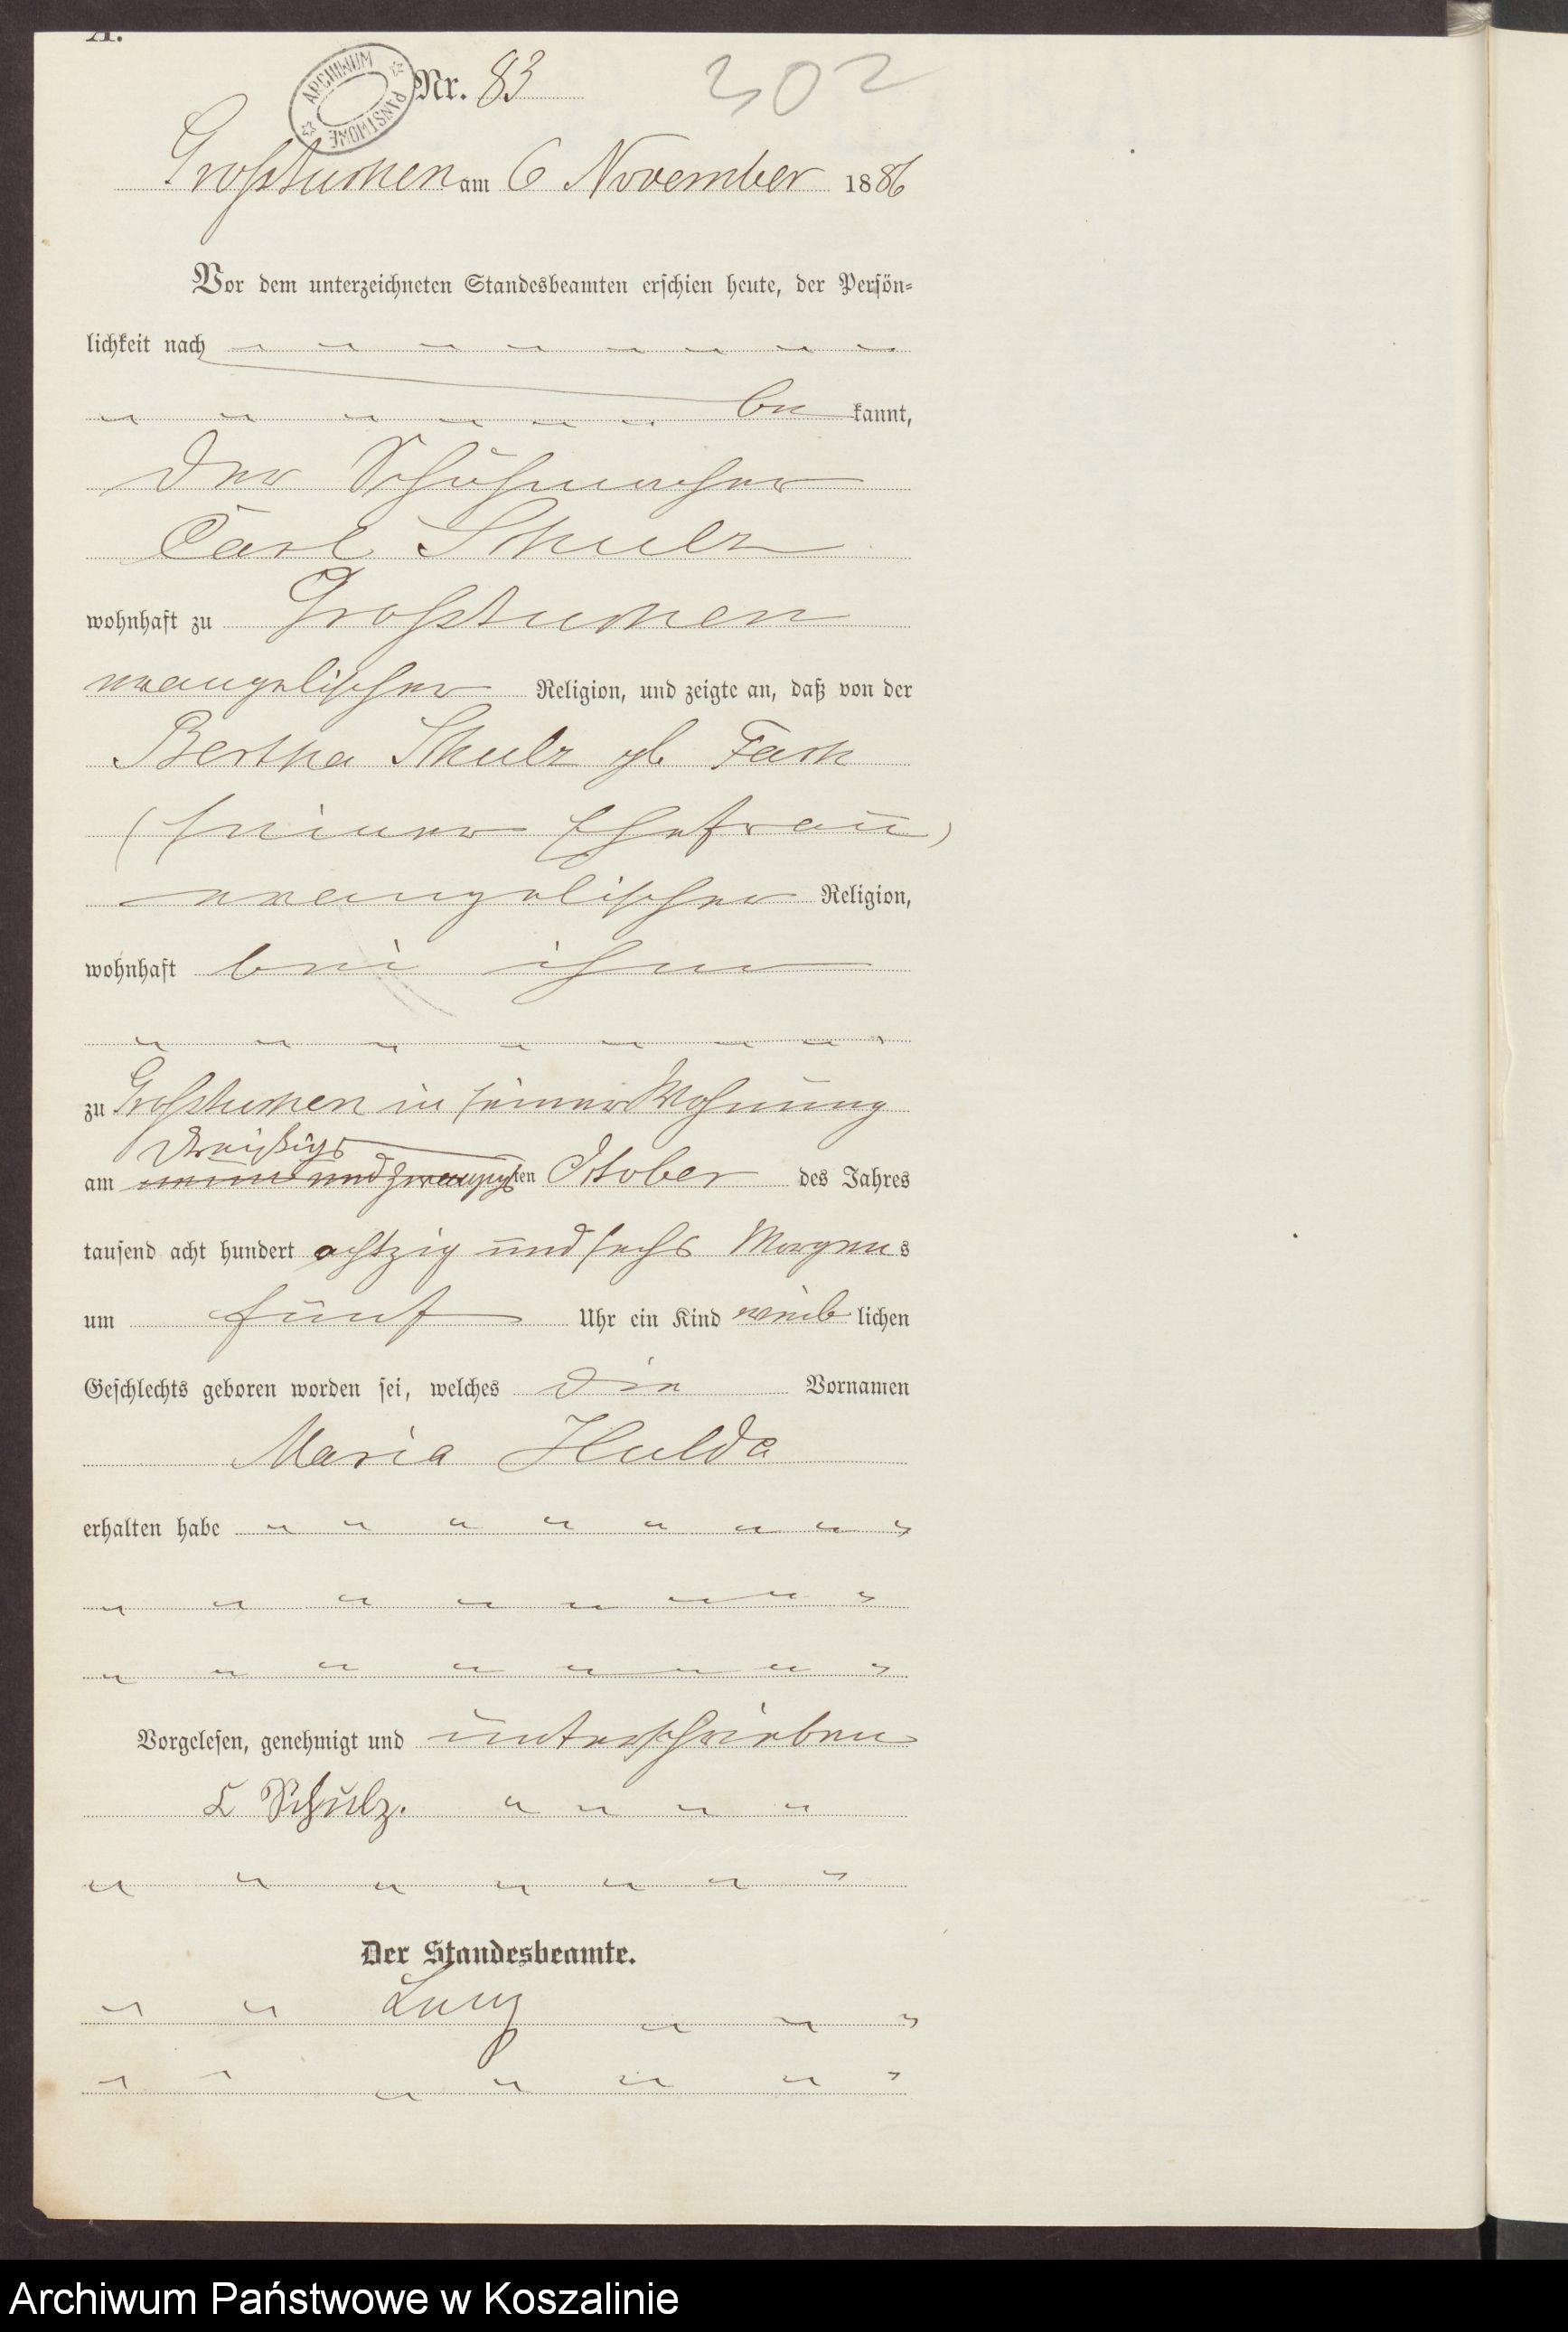 A.
ARCHIWUM PAŃSTWOWE
Nr. 83
302
Großtuchen am 6 November 1886
Vor dem unterzeichneten Standesbeamten erschien heute, der Persön-
lichkeit nach
be kannt,
der Schuhmacher
Carl Schulz
wohnhaft zu Großtuchen
evangelischer Religion, und zeigte an, daß von der
Bertha Schulz geb
(seiner Ehefrau)
evangelischer Religion,
wohnhaft bei ihm
zu Großtuchen in seiner Wohnung
dreißigs
am neun und zwanzigsten October des Jahres
tausend acht hundert achtzig und sechs Morgens
um fünf Uhr ein Kind weib lichen
Geschlechts geboren worden sei, welches die Vornamen
Maria Hulda
erhalten habe
Vorgelesen, genehmigt und unterschrieben
C Schulz.
Der Standesbeamte.
Archiwum Państwowe w Koszalinie